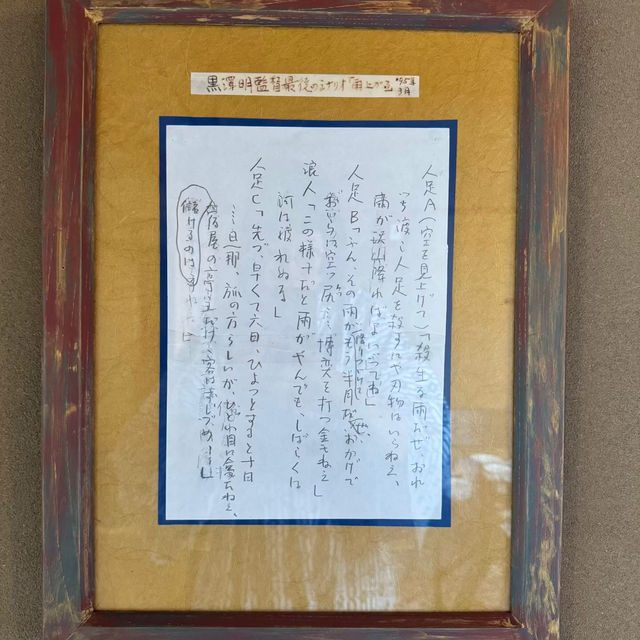 黒澤明監督最後のシナリオ「雨上がる」'95年3月
人足A(空を見上げて)「殺生な雨だぜ、おれ
たち渡し人足を殺すにゃ刃物はいらねえ、
雨が降れば よいってね」
人足B「ふん、その雨がもう半月だぜ、おかげで
おいらは空っ尻… 博奕を打つ金もねえ」
浪人「この様子だと雨がやんでも、しばらくは
河は渡れぬな」
人足C「先づ、早くて六日、ひょっとすると十日
…旦那、旅の方らしいが、ひどい目に会ったねえ、
儲けるのは 宿屋の 客は